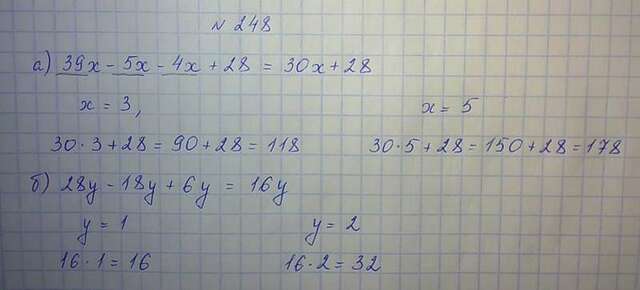 № 248
а) 39x - 5x - 4x + 28 = 30x + 28
x = 3, x = 5
30·3 + 28 = 90 + 28 = 118 30·5 + 28 = 150 + 28 = 178
б) 28y - 18y + 6y = 16y
y = 1 y = 2
16·1 = 16 16·2 = 32